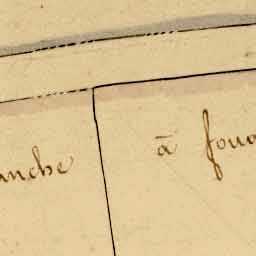 anche
à foua